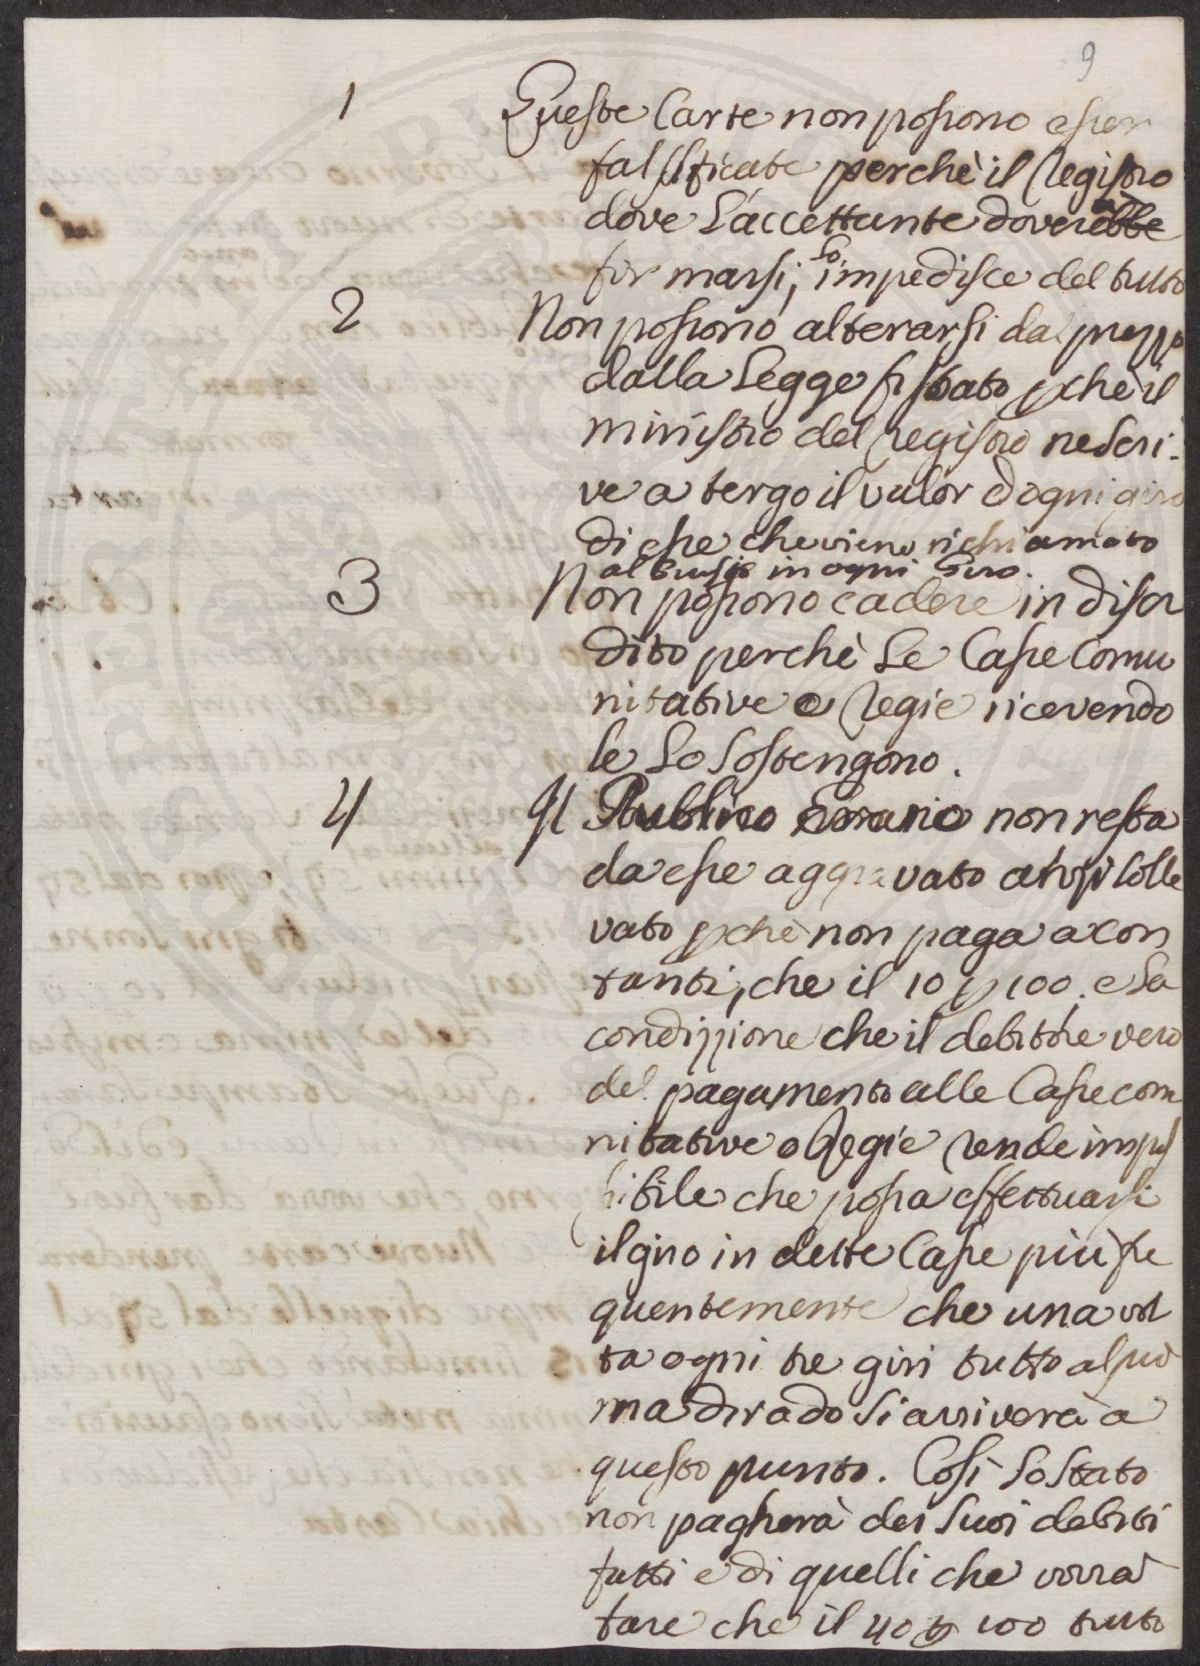 9
1 Queste Carte non possono esser
falsificate perchè il Registro
dove l'accettante doverebbe à
firmarsi, lo impedisce del tutto
2 Non possono alterarsi dal prezzo
dalla Legge fissato pche il
ministro del Registro ne scri-
ve a tergo il valor d'ogni giro
di esse che vien richiamato
al in ogni Giro.
3 Non possono cadere in discr
dito perchè le Casse Comu
nitative o Regie ricevendo
le lo sostengono.
4 Il Publico Erario non resta
da esse aggravato anzi solle
vato pche non paga a con
tanti, che il 10 p 100. e la
condizzione che il debitore vero
del pagamento alle Casse com
nitative o Regie rende impos
sibile che possa effettuarsi
il giro in dette Casse più fre
quentemente che una vol
ta ogni tre giri tutto al più
ma di rado si arriverà a
questo punto. Così lo stato
non pagherà dei suoi debiti
fatti e di quelli che vorrà
fare che il 40 p 100 tutto